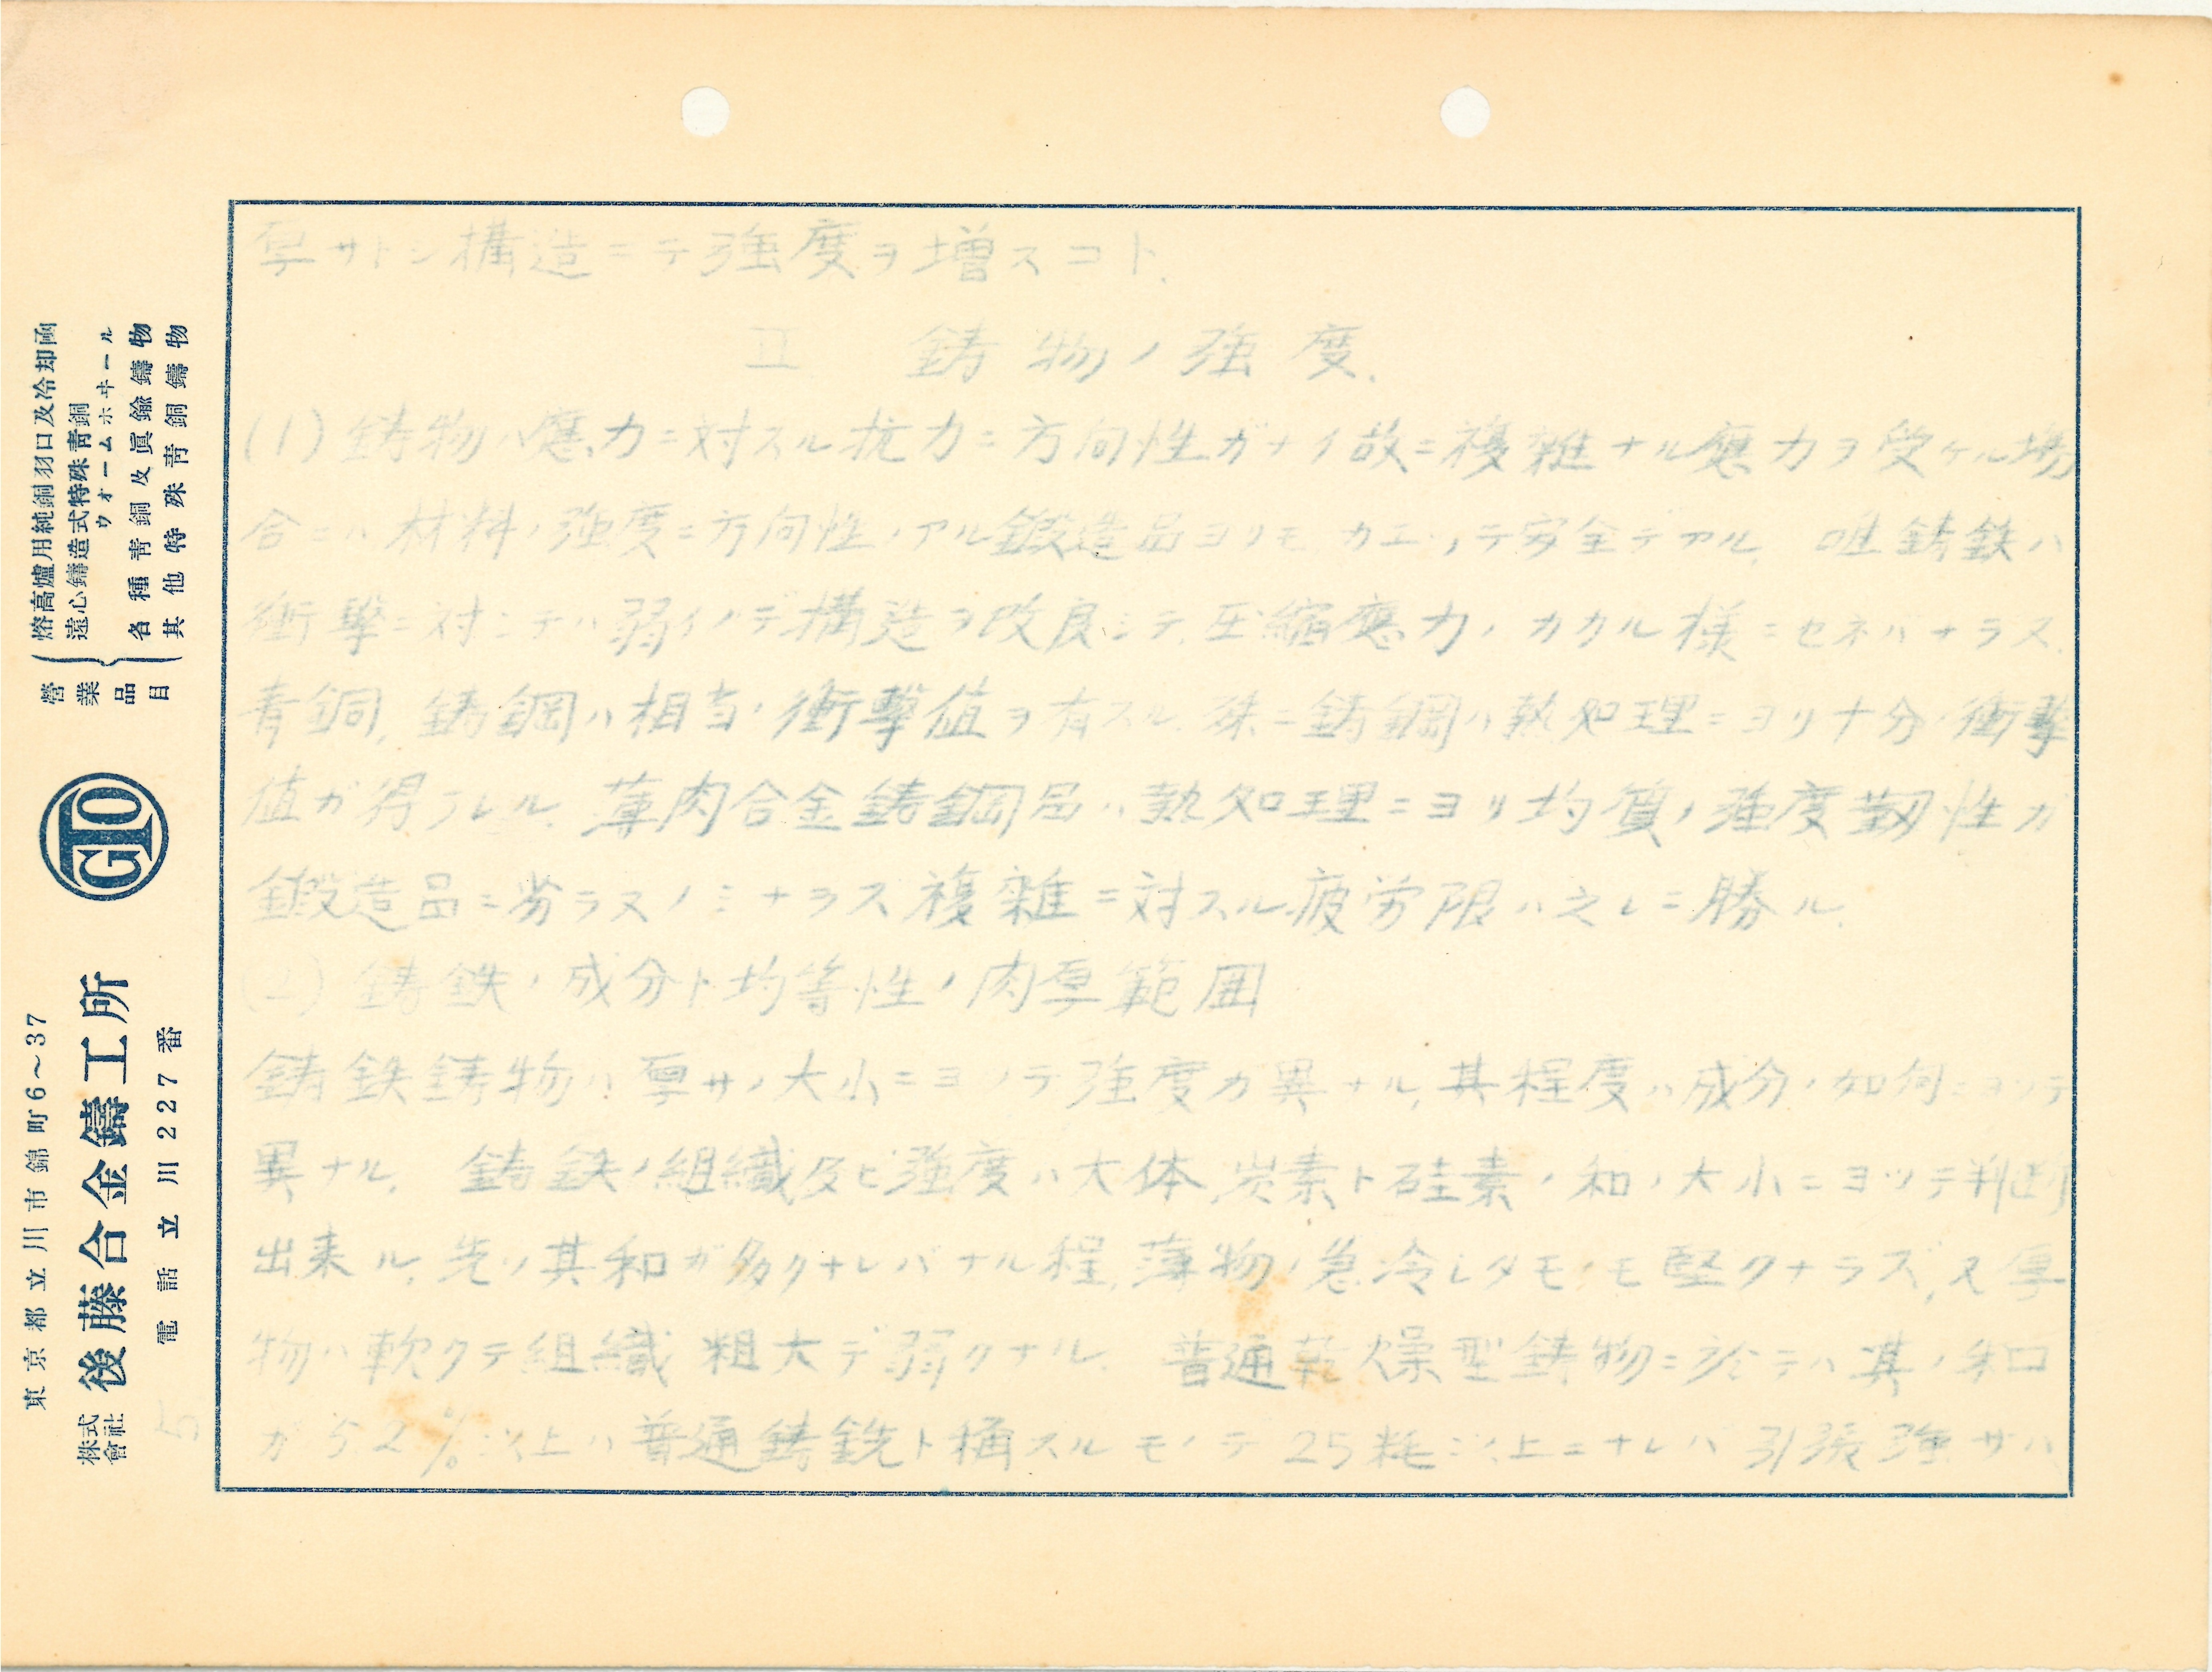 厚サトシ構造ニテ強度ヲ増スコト.
II 鋳物ノ強度.
(1) 鋳物ノ應力ニ対スル抗力ニ方向性ガナイ故ニ複雑ナル應力ヲ受ケル場
合ニハ材料ノ強度ニ方向性ノアル鍛造品ヨリモカエッテ安全デアル. 唯鋳鉄ハ
衝撃ニ対シテハ弱イノデ構造ヲ改良シテ圧縮應力ノカカル様ニセネバナラヌ.
青銅, 鋳鋼ハ相当ノ衝撃値ヲ有スル. 殊ニ鋳鋼ハ熱処理ニヨリ十分ノ衝撃
値ガ得ラレル. 薄肉合金鋳鋼品ハ熱処理ニヨリ均質ノ強度靱性ガ
鍛造品ニ劣ラヌノミナラス複雑ニ対スル疲労限ハ之レニ勝ル.
(2) 鋳鉄ノ成分ト均等性ノ肉厚範囲
鋳鉄鋳物ハ厚サノ大小ニヨッテ強度ガ異ナル, 其程度ハ成分ノ如何ニヨッテ
異ナル. 鋳鉄ノ組織及ビ強度ハ大体炭素ト硅素ノ和ノ大小ニヨッテ判断
出来ル. 先ツ其和ガ多クナレバナル程, 薄物ノ急冷シタモノモ堅クナラズ, 又厚
物ハ軟クテ組織粗大デ弱クナル. 普通乾燥型鋳物ニ於テハ其ノ和
ガ5.2%以上ハ普通鋳銑ト稱スルモノテ25粍以上ニナレバ引張強サハ
5
營業品目
熔高爐用純銅羽口及冷却函
遠心鑄造式特殊青銅
ウオームホヰール
各種青銅及眞鍮鑄物
其他特殊青銅鑄物
GTO
東京都立川市錦町6～37
株式會社 後藤合金鑄工所
電話立川227番